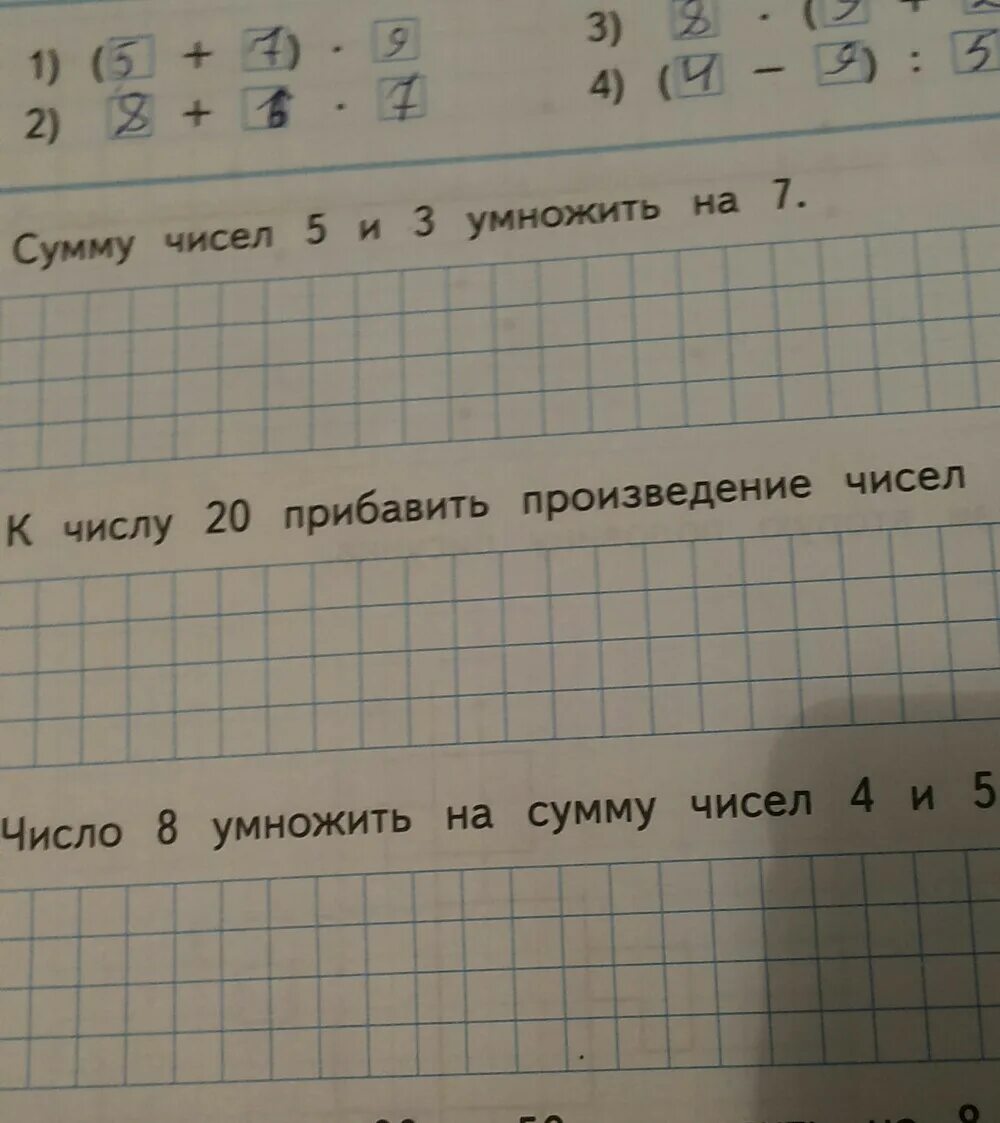 1) (5 + 7) · 9
2) 8 + 1 · 7
3) 8 · (9 +
4) (4 − 9) : 5
Сумму чисел 5 и 3 умножить на 7.
К числу 20 прибавить произведение чисел
Число 8 умножить на сумму чисел 4 и 5